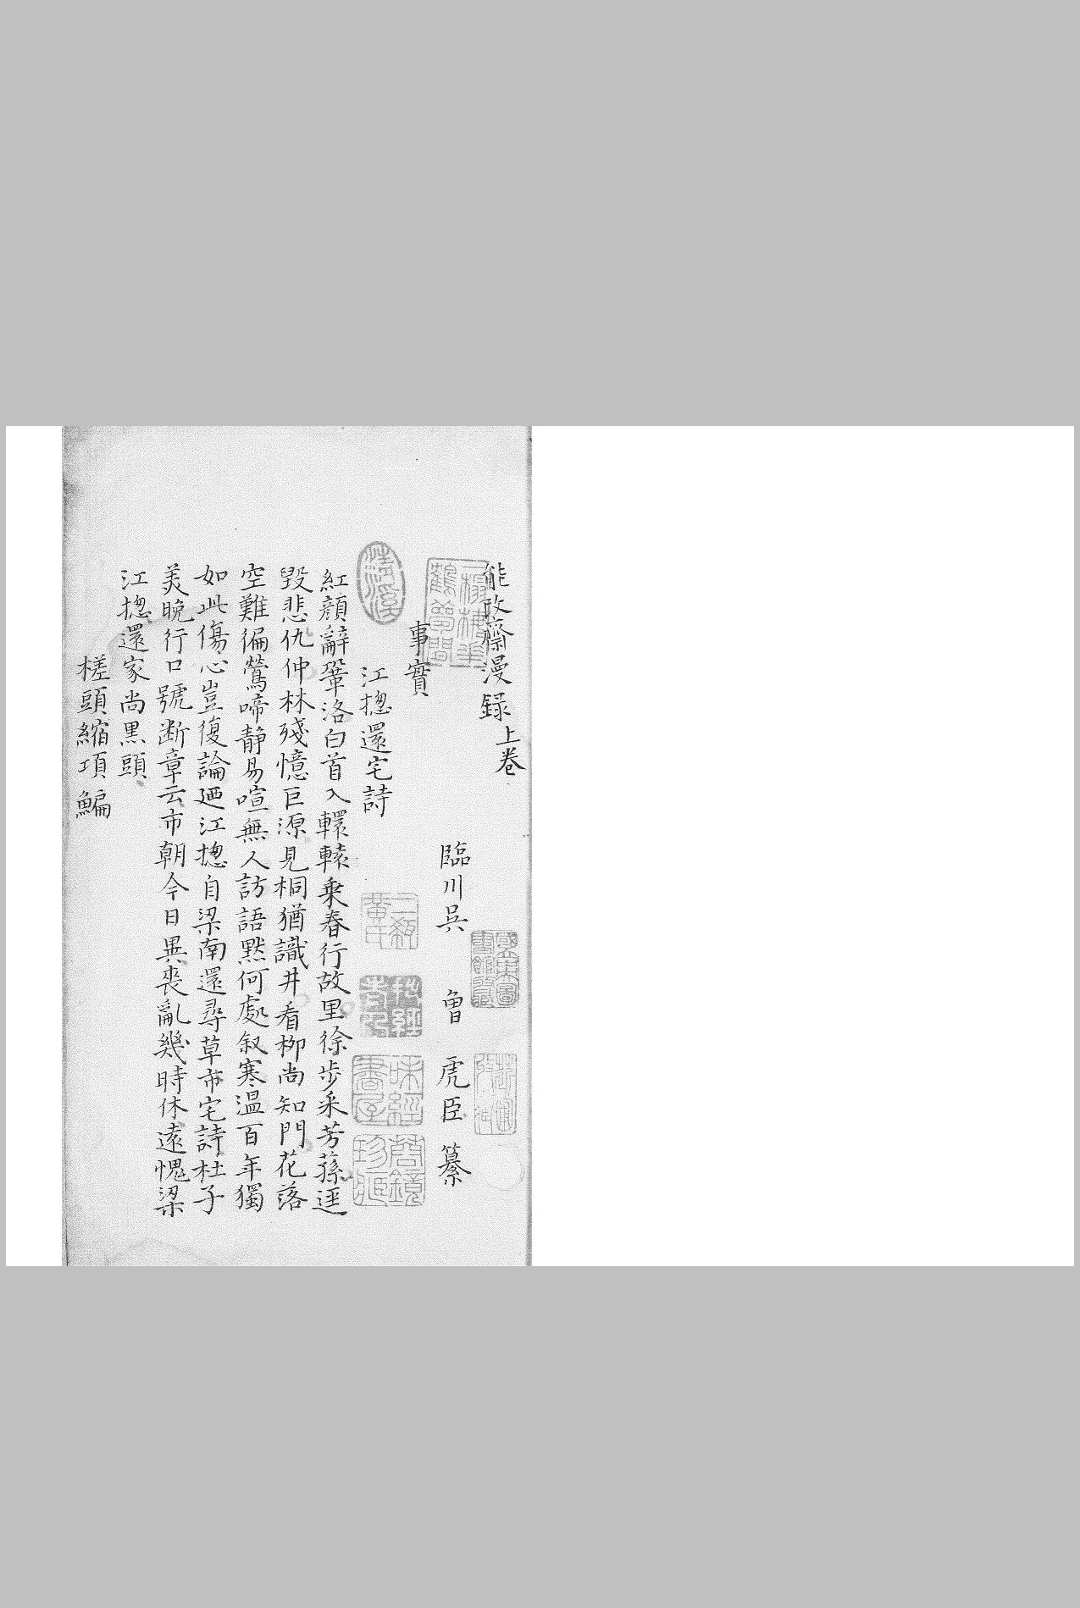 能改齋漫錄上卷
臨川吳 曾 虎臣 纂
事實
江摠還宅詩
紅顏辭鞏洛白首入轘轅乗春行故里徐步采芳蓀逕
毀悲仇仲林殘憶巨源見桐猶識井看柳尚知門花落
空難徧鶯啼静易喧無人訪語默何處叙寒温百年獨
如此傷心豈復論廼江摠自梁南還尋草市宅詩杜子
美晚行口號断章云市朝今日異喪亂幾時休遠愧梁
江摠還家尚黒頭
槎頭縮項鯿